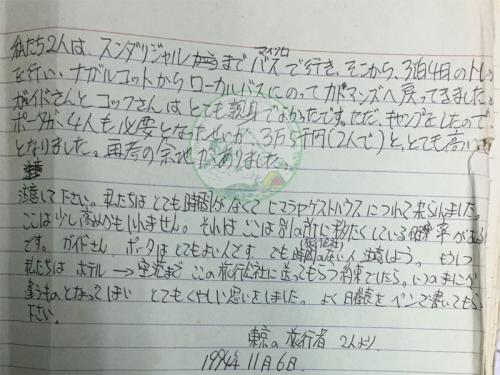 私たち2人は、スンダリジャルまでマイクロバスで行き、そこから、3泊4日のトレ
を行い、ナガルコットからローカルバスにのってカトマンズへ戻ってきました。
ガイドさんとコックさんはとても親身でよかったです。ただ、キャンプをしたので
ポーターが、4人も必要となったせいか、3万5千円(2人で)と、とても高い
となりました。再考の余地がありました。
注意して下さい。私たちはとても時間がなくてヒマラヤゲストハウスにつれて来られました。
ここは少し高めかもしれません。それは、ここは別の所に移たくしている
です。ガイドさん、ポーターはとてもよい人です。でも時間のない人注意しよう。もう1つ
私たちはホテル→空港までこの旅行会社に送ってもらう約束でしたら、いつのまにか
違うものとなってしまい とてもくやしい思いをしました。よく日程表をペンで書いてもら
下さい。
東京の旅行者 2人より
1994年11月6日.